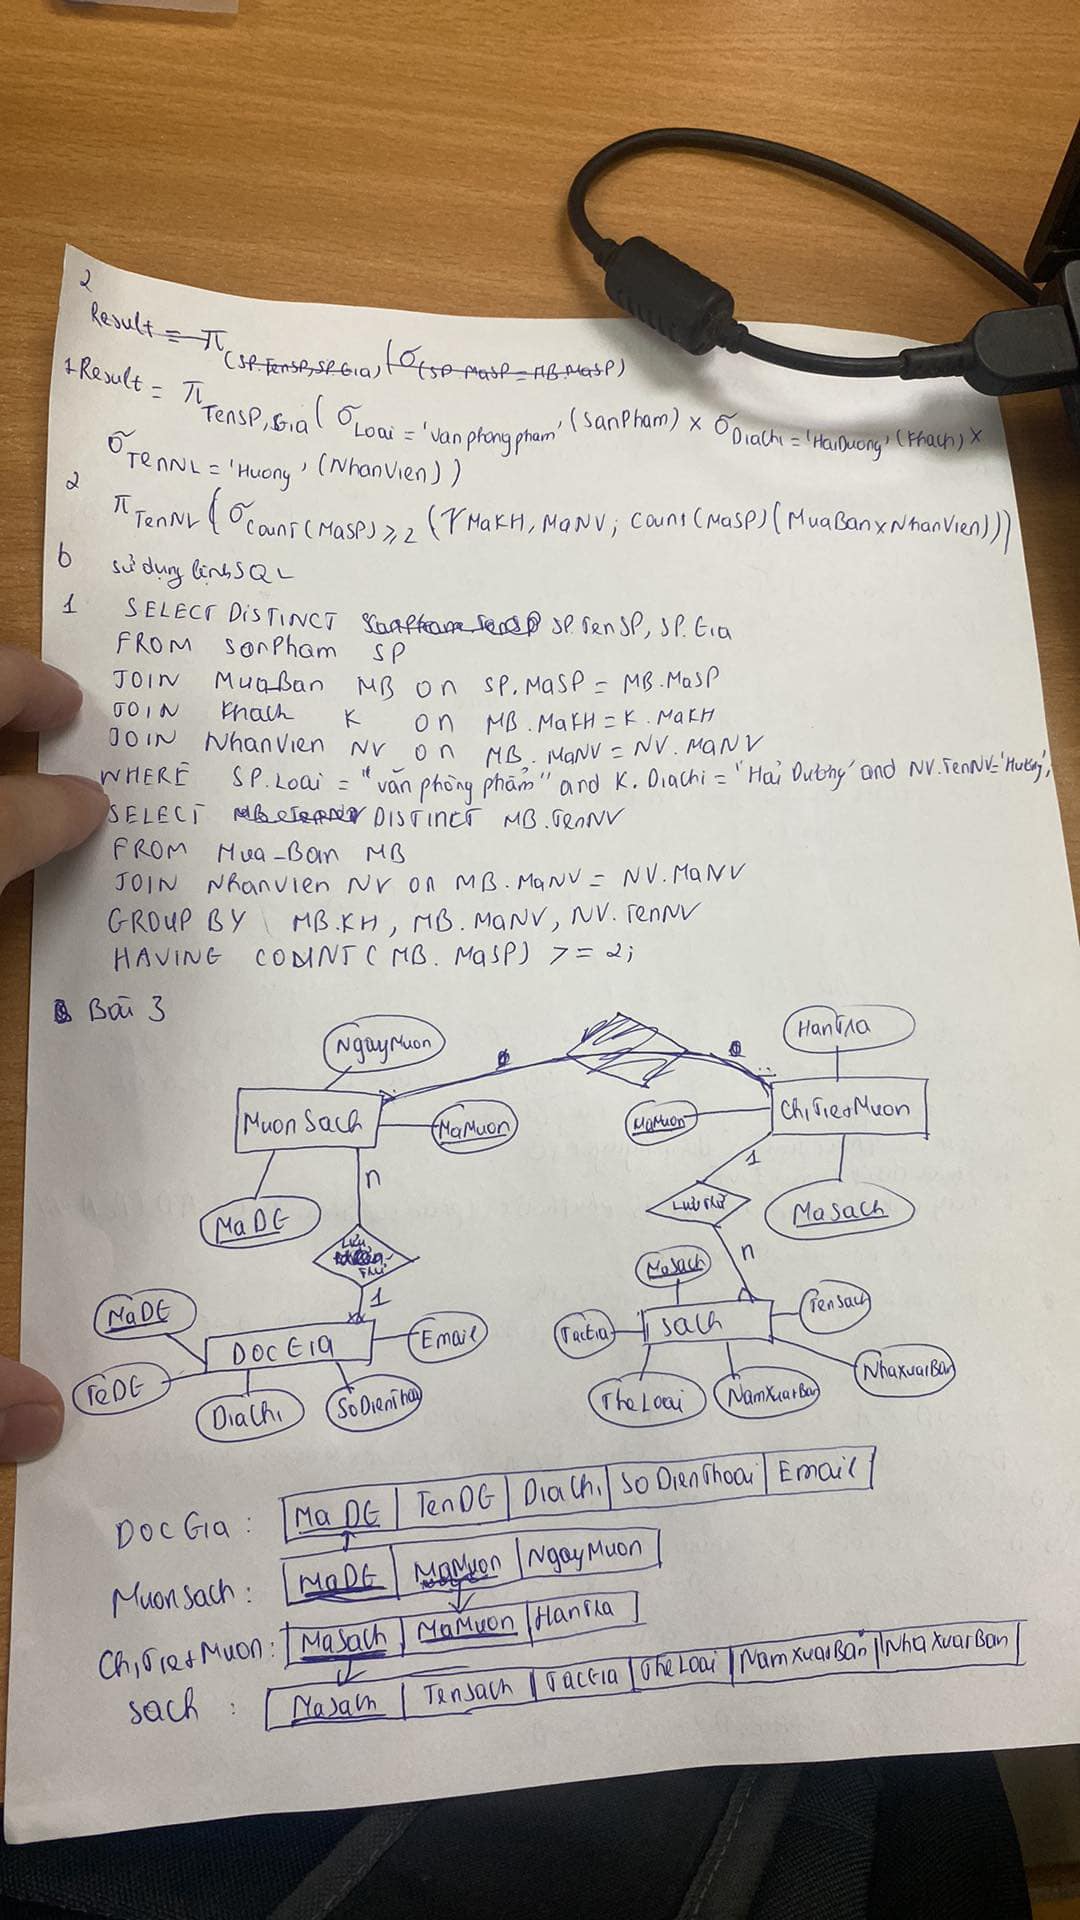 2
Result = π (SP.TenSP, SP.Gia) (σ (SP MaSP = MB.MaSP)
1 Result = π TenSP, Gia ( σ Loai = 'Vanphongpham' (SanPham) × σ Diachi = 'HaiDuong' (Khach) ×
σ TenNL = 'Huong' (NhanVien))
2
π TenNV ( σ Count(MaSP) ≥ 2 ( γ MaKH, MaNV; count(MaSP) (MuaBan × NhanVien)))
b sử dụng lệnh SQL
1 SELECT DISTINCT SP.TenSP, SP.Gia
FROM SanPham SP
JOIN MuaBan MB on SP.MaSP = MB.MaSP
JOIN Khach K on MB.MaKH = K.MaKH
JOIN NhanVien NV on MB.MaNV = NV.MaNV
WHERE SP.Loai = "văn phòng phẩm" and K.Diachi = 'Hải Dương' and NV.TenNV = 'Hương';
SELECT DISTINCT MB.TenNV
FROM Mua_Ban MB
JOIN NhanVien NV on MB.MaNV = NV.MaNV
GROUP BY MB.KH, MB.MaNV, NV.TenNV
HAVING COUNT(MB.MaSP) >= 2;
Bài 3
NgayMuon
HanTra
MuonSach
MaMuon
MaMuon
ChiTietMuon
MaDG
n
1
MaSach
n
1
MaDG
DocGia
Email
TeDG
DiaChi
SoDienThoai
MaSach
TacGia
Sach
TenSach
TheLoai
NamXuatBan
NhaXuatBan
DocGia: MaDG TenDG DiaChi SoDienThoai Email
MuonSach: MaDG MaMuon NgayMuon
ChiTietMuon: MaSach MaMuon HanTra
Sach: MaSach TenSach TacGia TheLoai NamXuatBan NhaXuatBan